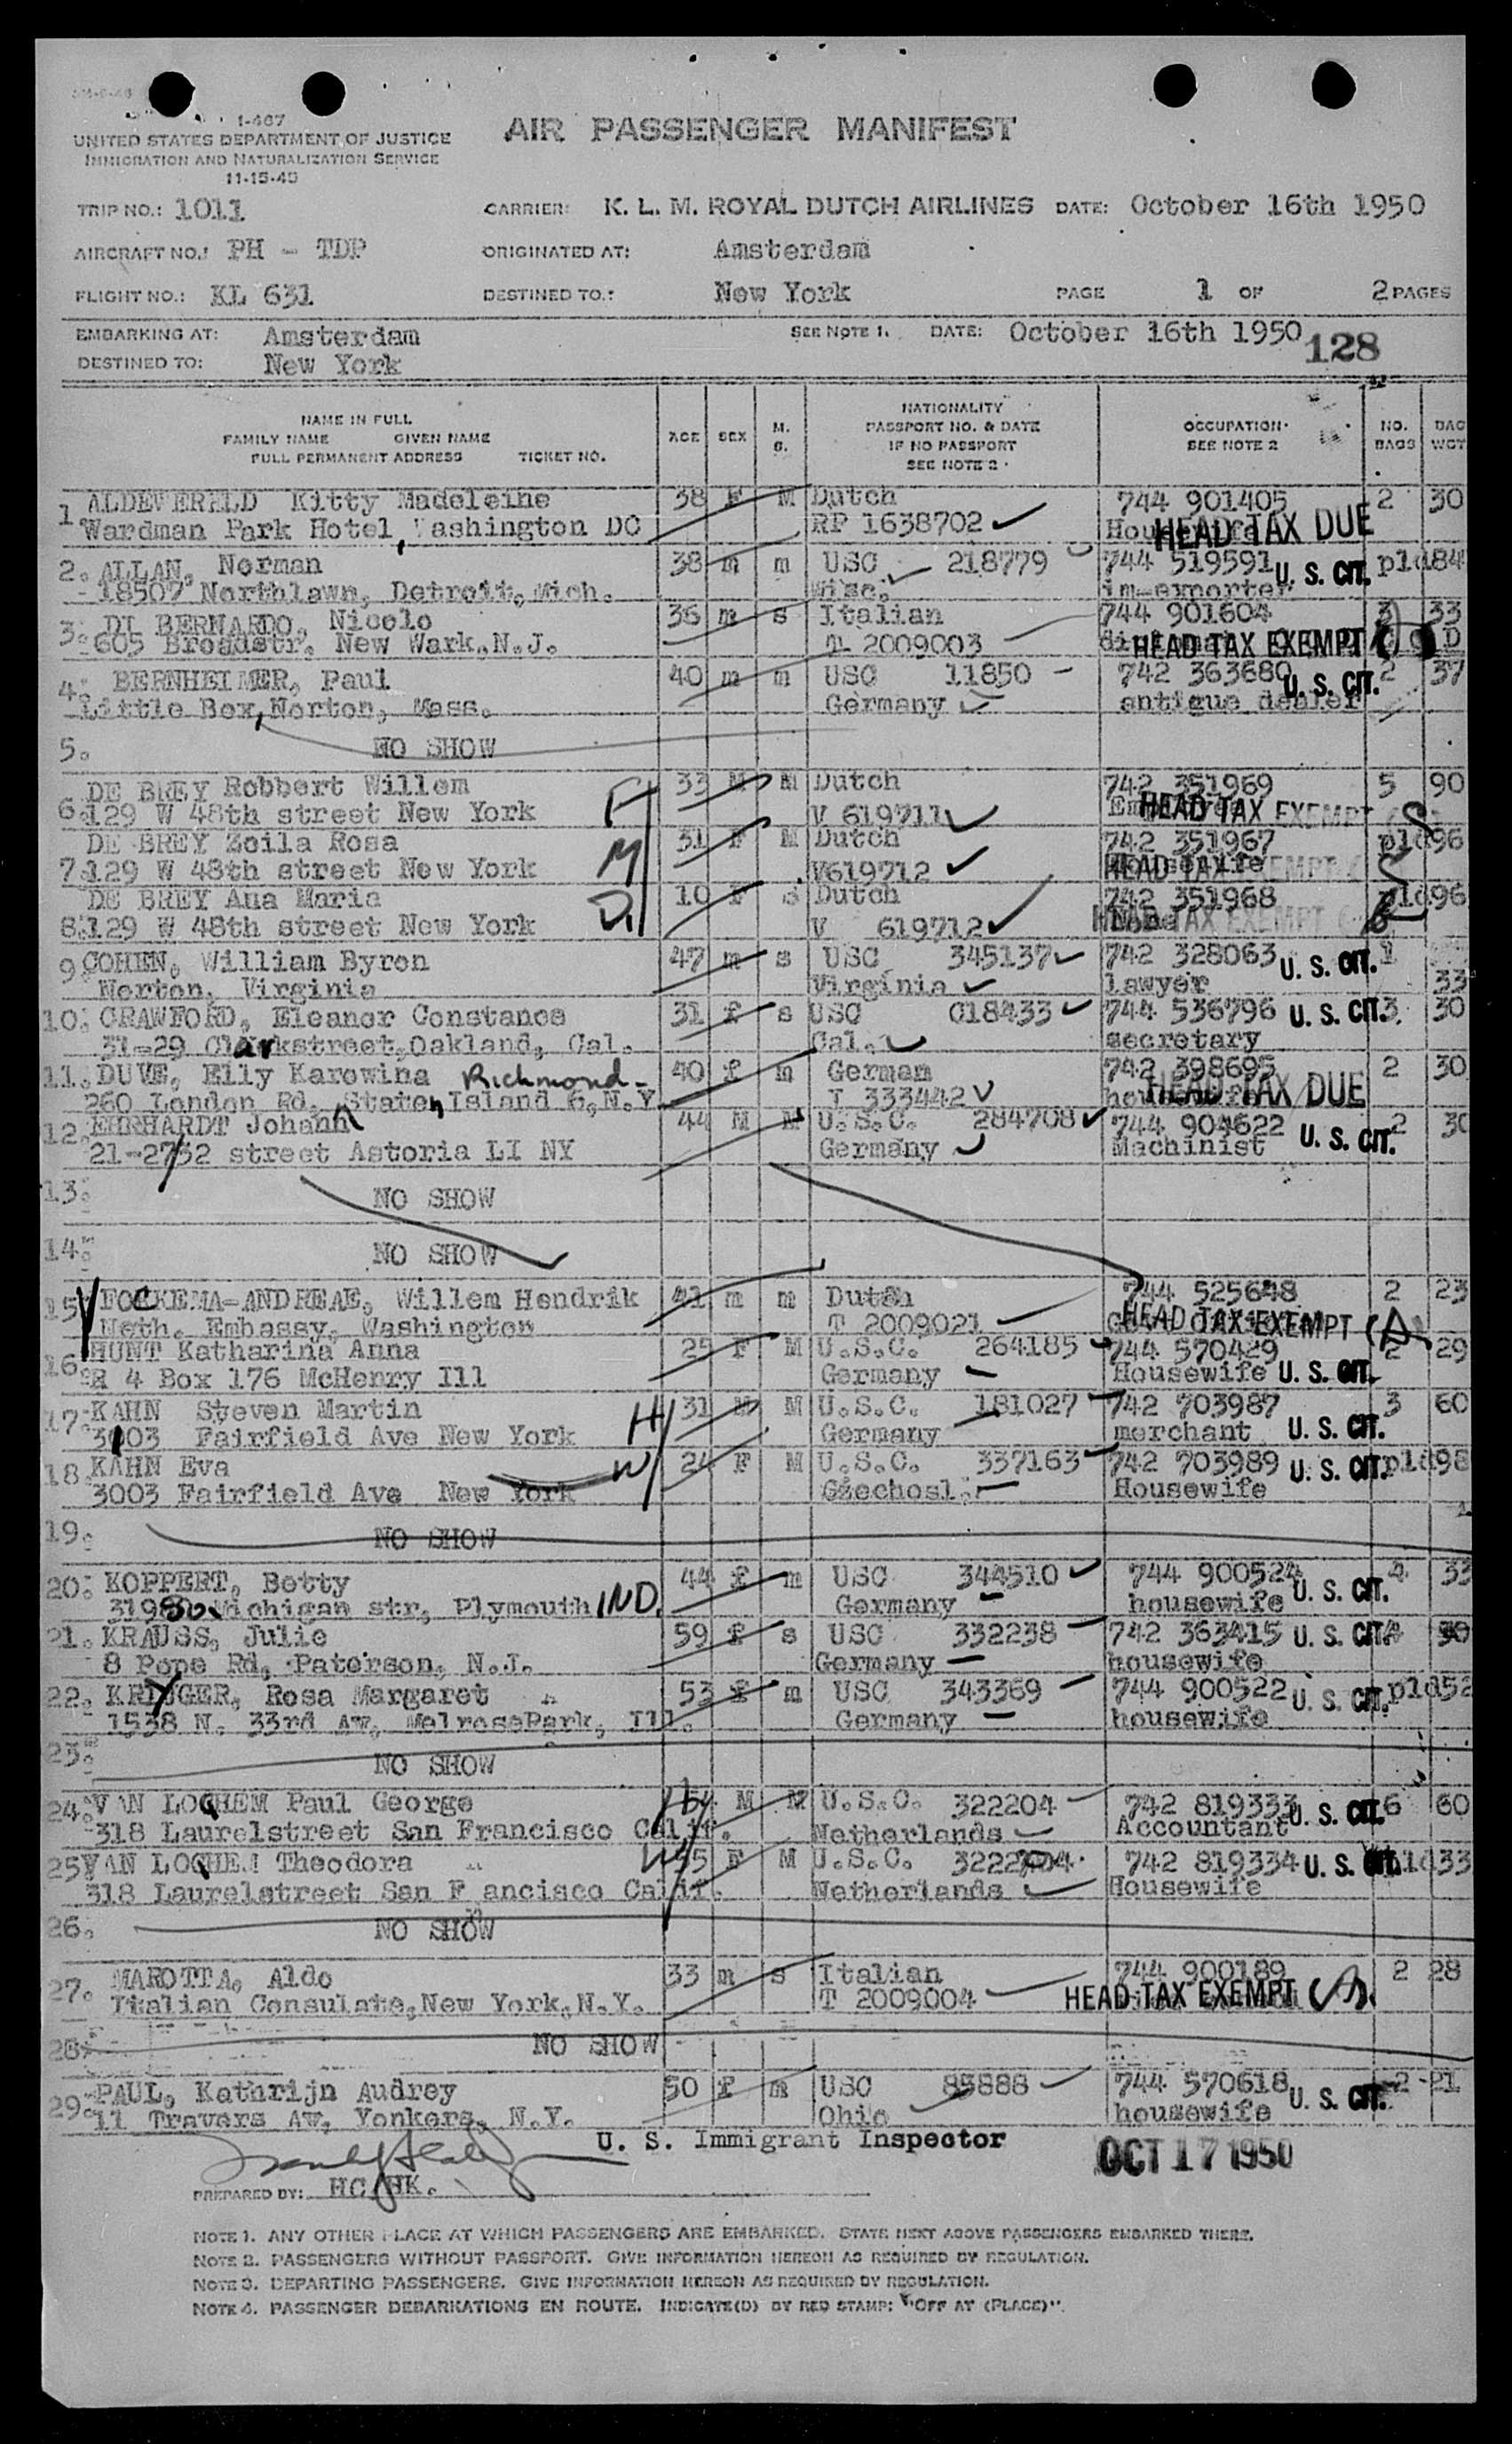 1-467
UNITED STATES DEPARTMENT OF JUSTICE
IMMIGRATION AND NATURALIZATION SERVICE
11-15-45
AIR PASSENGER MANIFEST
TRIP NO.: 1011 CARRIER: K. L. M. ROYAL DUTCH AIRLINES DATE: October 16th 1950
AIRCRAFT NO.: PH - TDP ORIGINATED AT: Amsterdam
FLIGHT NO.: KL 631 DESTINED TO.: New York PAGE 1 OF 2 PAGES
EMBARKING AT: Amsterdam SEE NOTE 1. DATE: October 16th 1950 128
DESTINED TO: New York
NAME IN FULL
FAMILY NAME GIVEN NAME
FULL PERMANENT ADDRESS TICKET NO.
AGE SEX M. S.
NATIONALITY
PASSPORT NO. & DATE
IF NO PASSPORT
SEE NOTE 2
OCCUPATION
SEE NOTE 2
NO. BAGS BAG WGT
1 ALDEVEREHLD Kitty Madeleine 38 F M Dutch 744 901405 2 30
Wardman Park Hotel, Washington DC RP 1638702 HEAD TAX DUE
2. ALLAN, Norman 38 m m USC 218779 744 519591 U. S. CIT. pld 84
18507 Northlawn, Detroit, Mich. Misc. im-exporter
3. DI BERNARDO, Nicolo 36 m s Italian 744 901604 3 33
605 Broadstr. New Wark, N.J. 2009003 HEAD TAX EXEMPT
4. BERNHEIMER, Paul 40 m m USC 11850 742 363680 U. S. CIT. 2 37
Little Box, Norton, Mass. Germany antique dealer
5. NO SHOW
6. DE BREY Robbert Willem F 33 M M Dutch 742 351969 5 90
129 W 48th street New York V 619711 HEAD TAX EXEMPT
7. DE BREY Zoila Rosa M 31 F M Dutch 742 351967 pld 96
129 W 48th street New York V619712 HEAD TAX EXEMPT
8. DE BREY Ana Maria D. 10 F s Dutch 742 351968 pld 96
129 W 48th street New York V 619712 HEAD TAX EXEMPT
9 COHEN, William Byron 47 m s USC 345137 742 328063 U. S. CIT. 1
Norton, Virginia Virginia lawyer 33
10. CRAWFORD, Eleanor Constance 31 f s USC 018433 744 536796 U. S. CIT. 3 30
31-29 Clarkstreet, Oakland, Cal. Cal. secretary
11. DUVE, Elly Karowina Richmond 40 f m German 742 398695 2 30
260 London Rd. Staten Island 6, N.Y. 333442 HEAD TAX DUE
12. EHRHARDT Johann 44 M M U.S.C. 284708 744 904622 U. S. CIT. 2 30
21-27 32 street Astoria LI NY Germany Machinist
13. NO SHOW
14. NO SHOW
15 FOCKEMA-ANDREAE, Willem Hendrik 41 m m Dutch 744 525648 2 23
Neth. Embassy, Washington T 2009021 HEAD TAX EXEMPT (A)
16. HUNT Katharina Anna 25 F M U.S.C. 264185 744 570429 2 29
R 4 Box 176 McHenry Ill Germany Housewife U. S. CIT.
17. KAHN Steven Martin H 31 M M U.S.C. 181027 742 703987 3 60
3003 Fairfield Ave New York Germany merchant U. S. CIT.
18. KAHN Eva W 24 F M U.S.C. 337163 742 703989 U. S. CIT. pld 98
3003 Fairfield Ave New York Czechosl. Housewife
19. NO SHOW
20. KOPPERT, Betty 44 f m USC 344510 744 900524 U. S. CIT. 4 33
Michigan str, Plymouth IND. Germany housewife
21. KRAUSS, Julie 59 f s USC 332238 742 363415 U. S. CIT. 30
8 Pope Rd, Paterson, N.J. Germany housewife
22. KRYGER, Rosa Margaret 53 f m USC 343369 744 900522 U. S. CIT. pld 52
1538 N. 33rd Av, MelrosePark, Ill. Germany housewife
23. NO SHOW
24. VAN LOGHEM Paul George H 54 M M U.S.C. 322204 742 819333 U. S. CIT. 6 60
318 Laurelstreet San Francisco Calif. Netherlands Accountant
25 VAN LOGHEM Theodora W 55 F M U.S.C. 322204 742 819334 U. S. CIT. pld 33
318 Laurelstreet San F ancisco Calif. Netherlands Housewife
26. NO SHOW
27. MAROTTA, Aldo 33 m s Italian 744 900189 2 28
Italian Consulate, New York, N.Y. T 2009004 HEAD TAX EXEMPT
28. NO SHOW
29. PAUL, Kathrijn Audrey 50 f m USC 85888 744 570618 U. S. CIT. 2 21
11 Travers Av, Yonkers, N.Y. Ohio housewife
U. S. Immigrant Inspector OCT 17 1950
PREPARED BY: HC/HK.
NOTE 1. ANY OTHER PLACE AT WHICH PASSENGERS ARE EMBARKED. STATE NEXT ABOVE PASSENGERS EMBARKED THERE.
NOTE 2. PASSENGERS WITHOUT PASSPORT. GIVE INFORMATION HEREON AS REQUIRED BY REGULATION.
NOTE 3. DEPARTING PASSENGERS. GIVE INFORMATION HEREON AS REQUIRED BY REGULATION.
NOTE 4. PASSENGER DEBARKATIONS EN ROUTE. INDICATE(D) BY RED STAMP: "OFF AT (PLACE)".